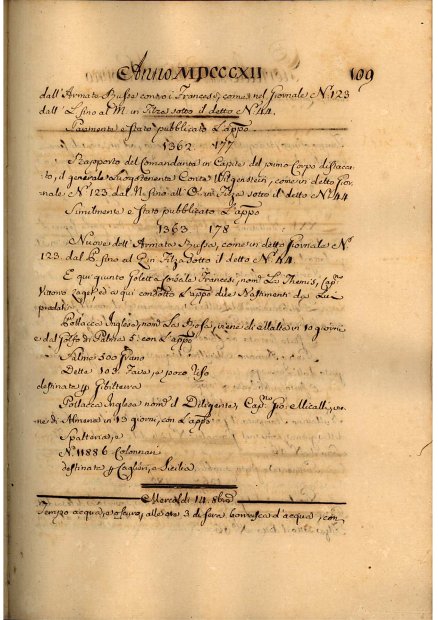 Anno MDCCCXII 109
dall' Armata Russa contro i Francesi, come nel Giornale N.º 123
dall' L fino al M in Filza sotto il detto N.º 44.
Parimente è stato pubblicato L'appo
1362 177
Rapporto del Comandante in Capite del primo Corpo distacca-
to, il generale Luogotenente Conte Witgenstein, come in detto Gior-
nale N.º 123 dal N fino all' O in Filza sotto il detto N.º 44
Similmente è stato pubblicato L'appo
1363 178
Nuove dell' Armata Russa, come in detto Giornale N.º
123 dal P fino al Q in Filza sotto il detto N.º 44.
E qui giunto Goletta Francesi, nom. La Themis, Cap.
Vittorio ed a qui condotto L'appo delle Bastimenti da Lui
predati
Pollacca Inglese, nom. La Rosa, viene di Malta in 10 giorni
e dal Golfo di Patras 5 con L'appo
Salme 500 Grano
Dette 103 Fava, e poco
destinata p. Gibilterra
Pollacca Inglesa nom.ª il Diligente, Cap.no Gio. Micallef, vie-
ne di Almeria in 13 giorni, con L'appo
Spalteria, e
N.º 11886 Colonnari
destinata p. Cagliari, e Sicilia
Mercoldì 14 8bre
Tempo acqua, e oscuro, alle ore 3 di sera burrasca d'acqua, con